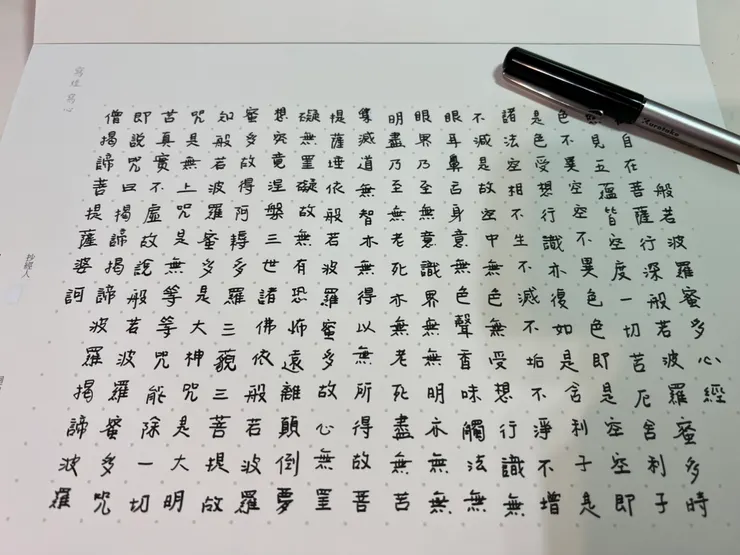 般若波羅蜜多心經
自在菩薩行深般若波羅蜜多時
見五蘊皆空度一切苦厄舍利子
色不異空空不異色色即是空空即
是色受想行識亦復如是舍利子是
諸法空相不生不滅不垢不淨不增
不減是故空中無色無受想行識無
眼耳鼻舌身意無色聲香味觸法無
眼界乃至無意識界無無明亦無無
明盡乃至無老死亦無老死盡無苦
集滅道無智亦無得以無所得故菩
提薩埵依般若波羅蜜多故心無罣
礙無罣礙故無有恐怖遠離顛倒夢
想究竟涅槃三世諸佛依般若波羅
蜜多故得阿耨多羅三藐三菩提故
知般若波羅蜜多是大神咒是大明
咒是無上咒是無等等咒能除一切
苦真實不虛故說般若波羅蜜多咒
即說咒曰揭諦揭諦波羅揭諦波羅
僧揭諦菩提薩婆訶
寫經 寫心
抄經人